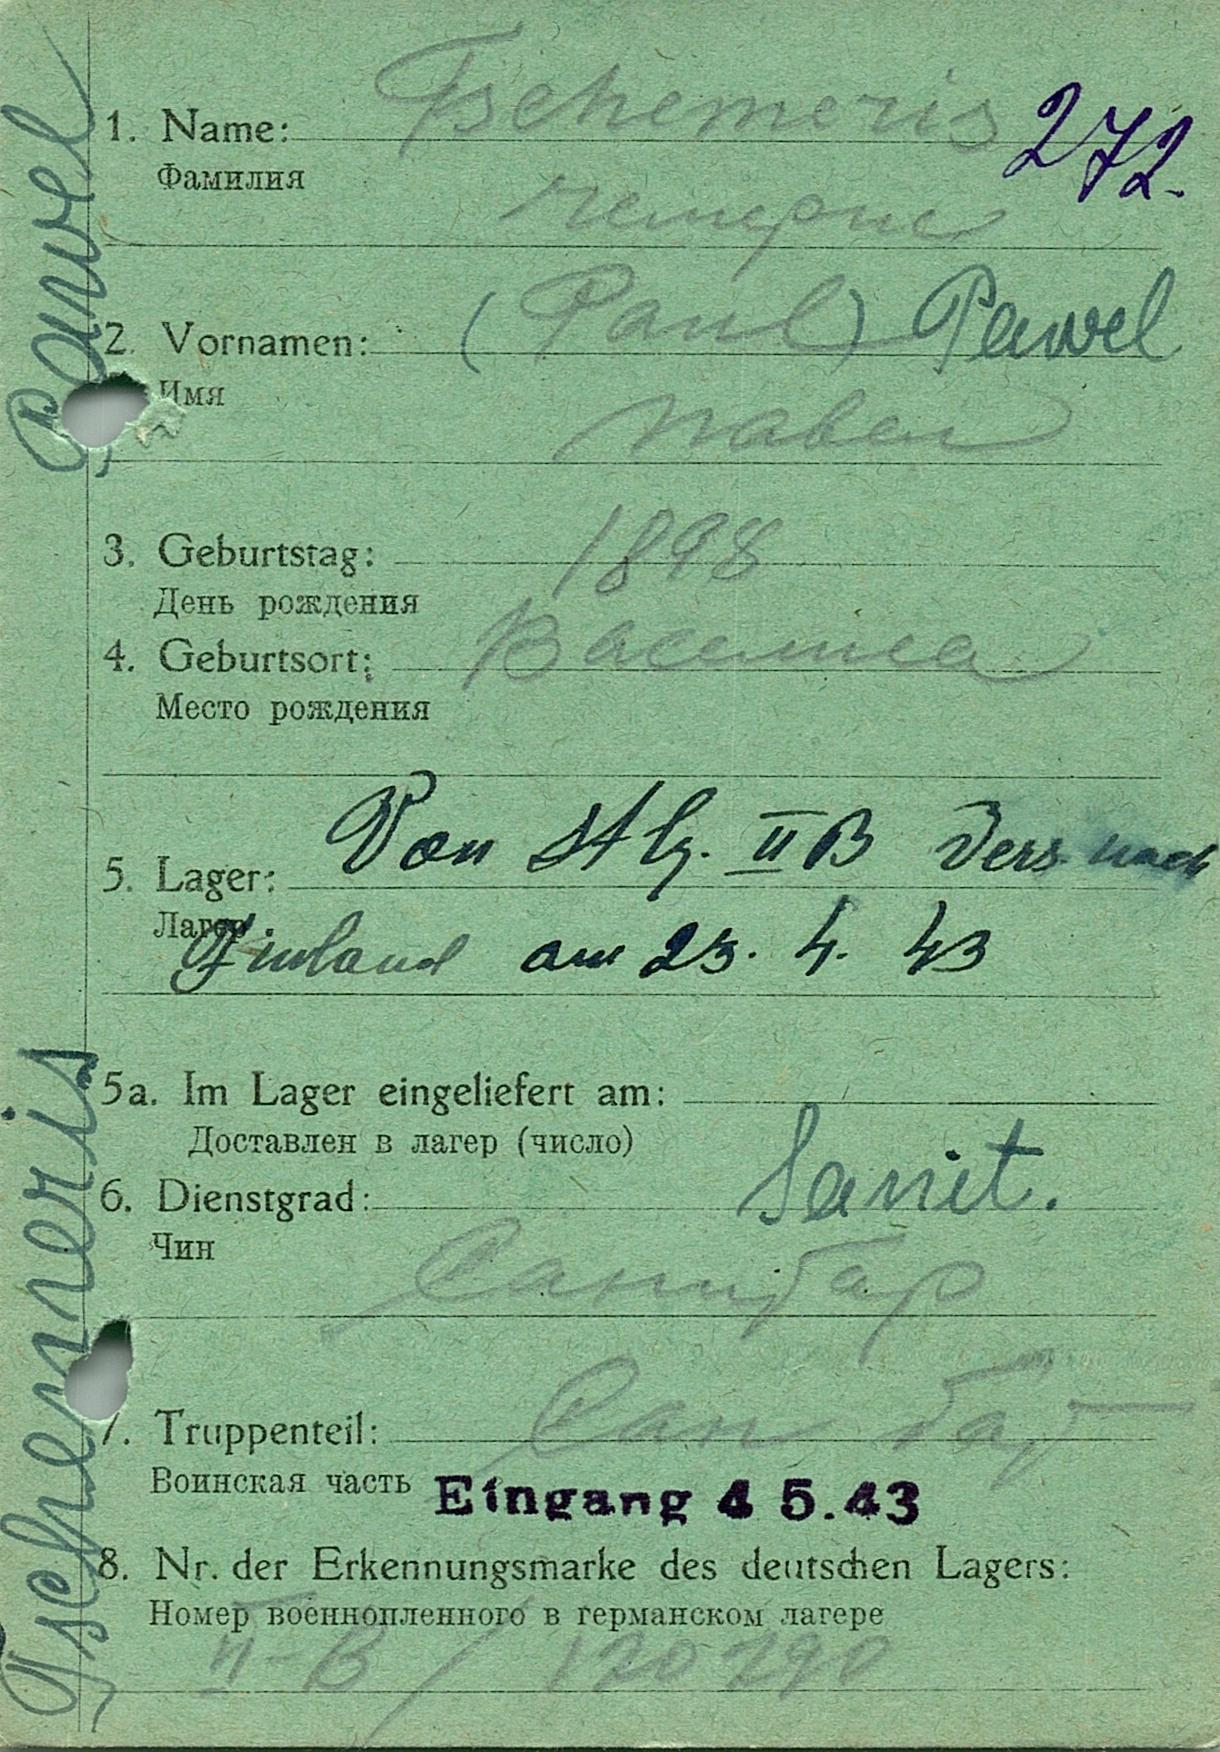 1. Name: Tschemeris 272.
Фамилия
чемерис
2. Vornamen: (Paul) Pawel
Имя
павел
3. Geburtstag: 1898
День рождения
4. Geburtsort:
Место рождения
Von Stlg. II B Vers. nach
5. Lager:
Лагер
Finland am 23. 4. 43
5a. Im Lager eingeliefert am:
Доставлен в лагер (число)
6. Dienstgrad: Sanit.
Чин
Санитар
7. Truppenteil: Сан бат
Воинская часть
Eingang 4 5.43
8. Nr. der Erkennungsmarke des deutschen Lagers:
Номер военнопленного в германском лагере
II-B / 120290
Tschemeris Pawel